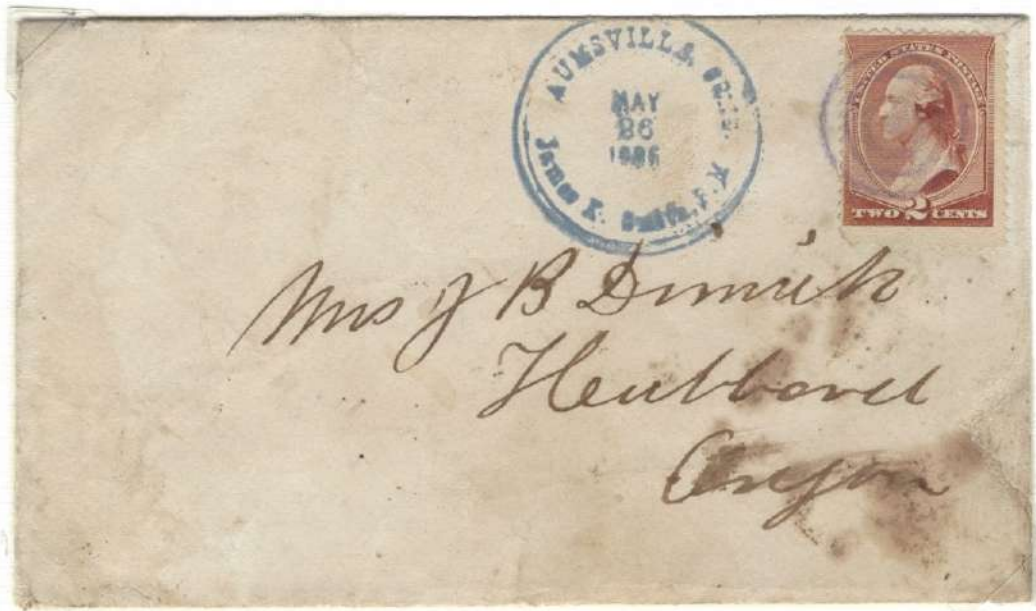 AUMSVILLE, OREG.
MAY
26
1886
James K. Smith, P. M.
UNITED STATES POSTAGE
TWO 2 CENTS
Mrs J B Dimick
Hubbard
Oregon